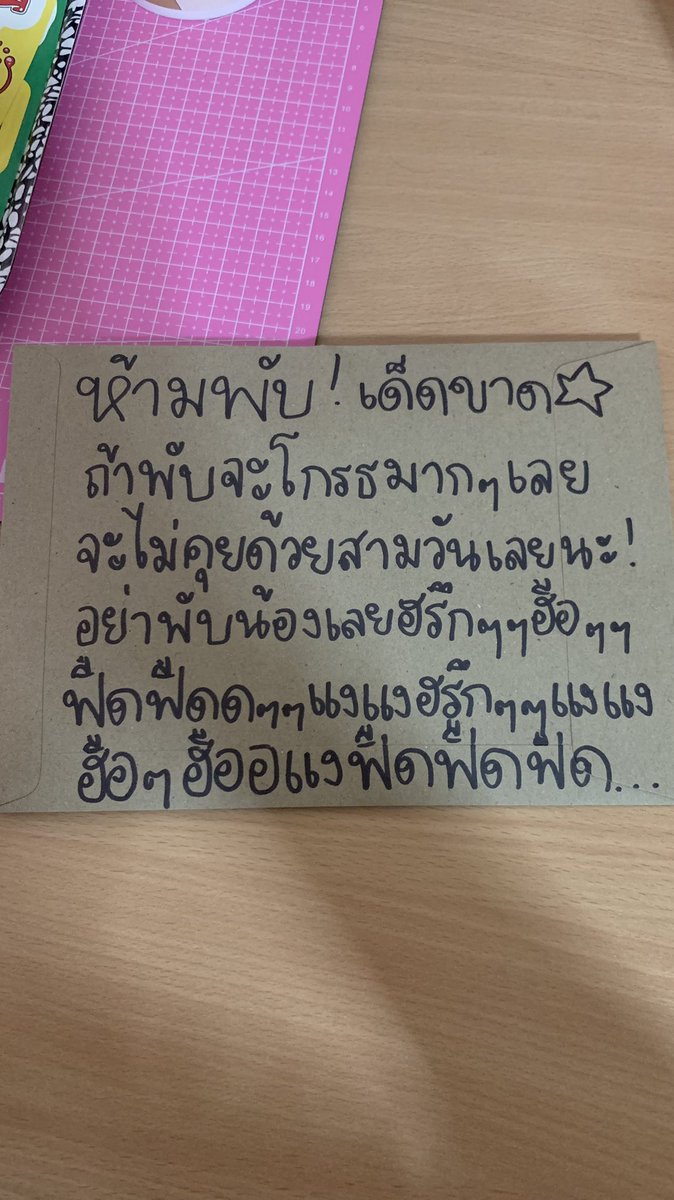 ห้ามพับ! เด็ดขาด☆
ถ้าพับจะโกรธมากๆเลย
จะไม่คุยด้วยสามวันเลยนะ!
อย่าพับน้องเลยฮรึกๆๆฮือๆๆ
ฟืดฟืดดๆๆแงแงฮรึกๆๆแงแง
ฮือๆฮืออแงฟืดฟืดฟืด...
6
7
8
9
10
11
12
13
14
15
16
17
18
19
20